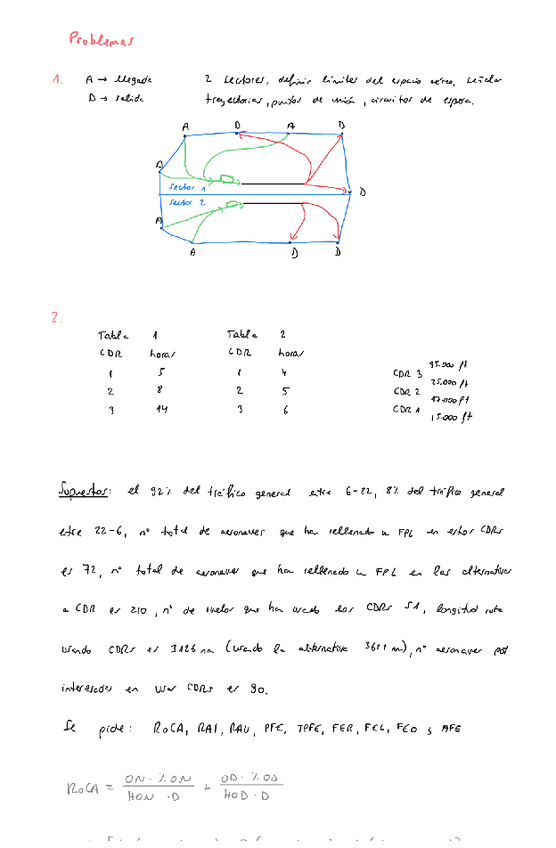 Problemas
1. A → llegada 2 sectores, definir límites del espacio aéreo, señalar
D → salida trayectorias, puntos de unión, circuitos de espera.
A D A D
A
sector 1
sector 2
D
A
A D D
2.
Tabla 1 Tabla 2
CDR horas CDR horas
1 5 1 4
2 8 2 5
3 14 3 6
CDR 3
25.000 ft
CDR 2
CDR 1
15.000 ft
Supuestos: el 92% del tráfico general entre 6-22, 8% del tráfico general
entre 22-6, nº total de aeronaves que han rellenado un FPL en estos CDRs
es 72, nº total de aeronaves que han rellenado un FPL en las alternativas
a CDR es 210, nº de vuelos que ha usado los CDRs 51, longitud ruta
usando CDRs es 3426 nm (usando la alternativa nm), nº aeronaves pot
interesadas en usar CDRs es 90.
Se pide: RoCA, RAI, RAU, PFE, TPFE, FER, FEL, FCO y AFE
RoCA = ON · % ON / HON · D + OD · % OD / HOD · D